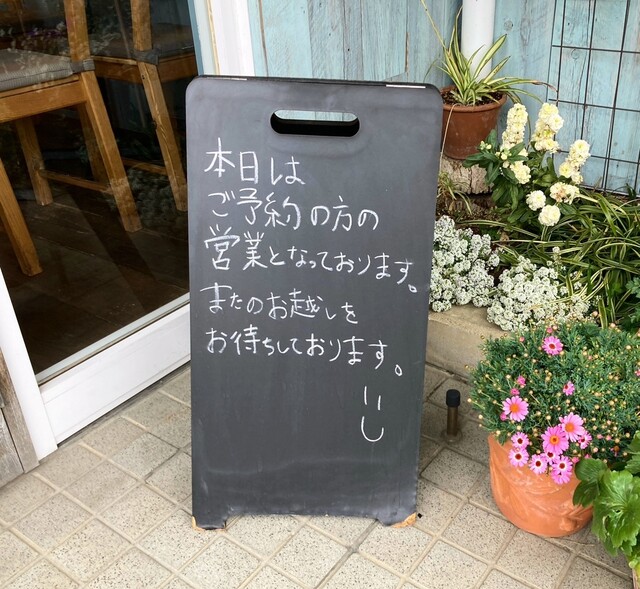 本日は
ご予約の方の
営業となっております。
またのお越しを
お待ちしております。